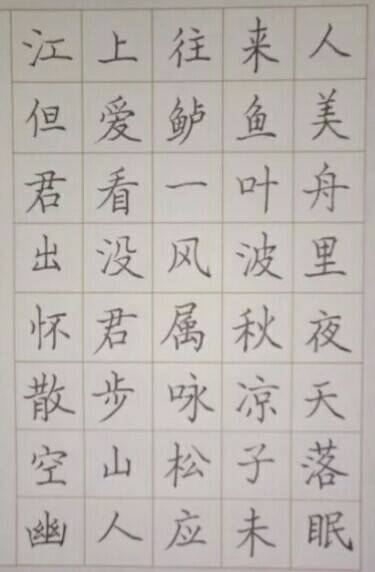 江上往来人
但爱鲈鱼美
君看一叶舟
出没风波里
怀君属秋夜
散步咏凉天
空山松子落
幽人应未眠